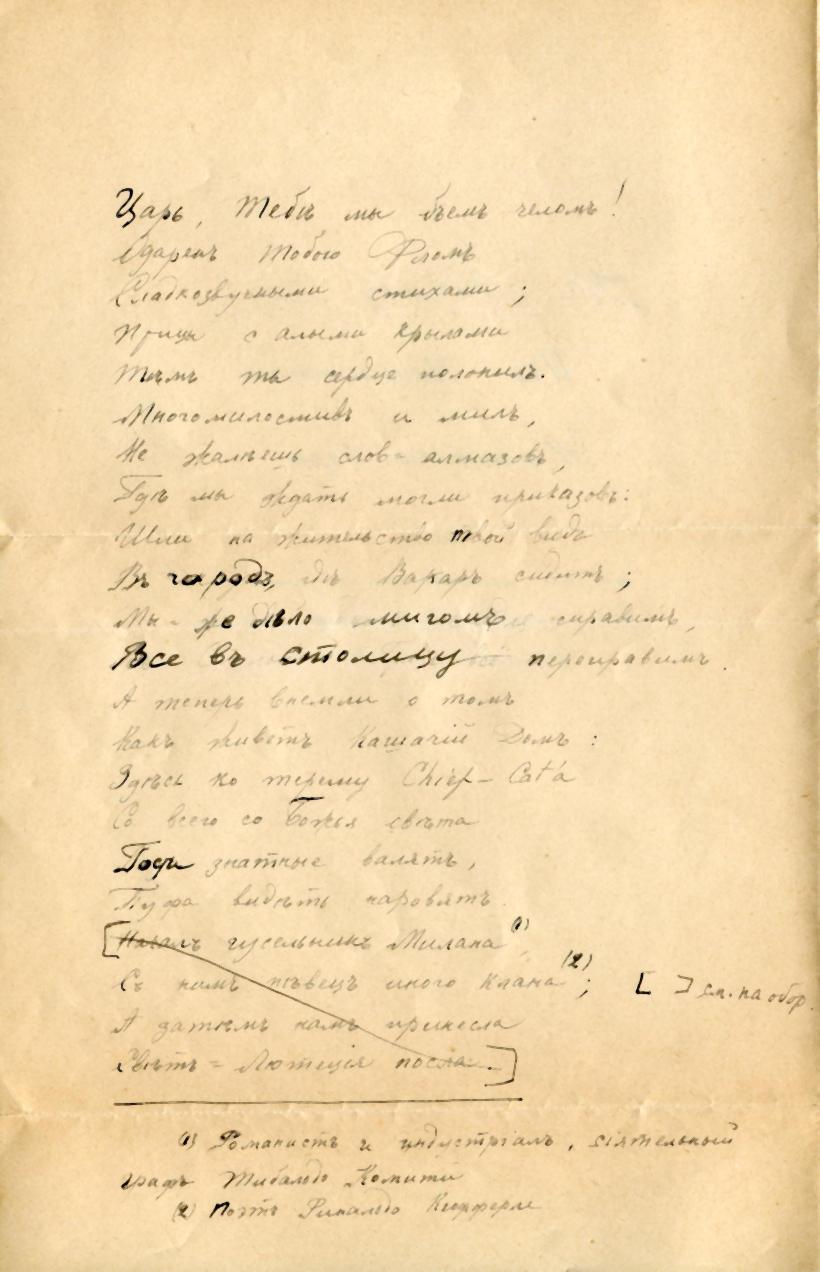 Царь, Тебѣ мы бьемъ челомъ!
Одаренъ Тобою Фломъ
Сладкозвучными стихами;
Птицы с алыми крылами
Тѣмъ ты сердце полонилъ.
Многомилостивъ и милъ,
Не жалѣешь слов=алмазовъ,
Гдѣ мы ждать могли приказовъ:
Шли на жительство твой видъ
Въ городъ, гдѣ Вакаръ сидитъ;
Мы же дѣло мигомъ справимъ,
Все въ столицу переправимъ.
А теперь внемли о томъ
Какъ живетъ Кашачій Домъ:
Здѣсь ко терему Chief-Cat'a
Со всего со Божья свѣта
Гости знатные валятъ,
Пуфа видѣть норовятъ.
[Начал гусельникъ Милана (1),
Съ нимъ пѣвецъ иного клана (2); [ ] см. на обор.
А затѣмъ намъ принесла
Свѣтъ=Лютеція посла.]
(1) Романистъ и индустріалъ, сіятельный
графъ Тибальдо Комитти
(2) Поэтъ Ринальдо Кюфферле